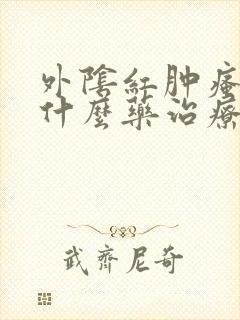 外陰紅肿瘙
什麼藥治療
武齊尼奇